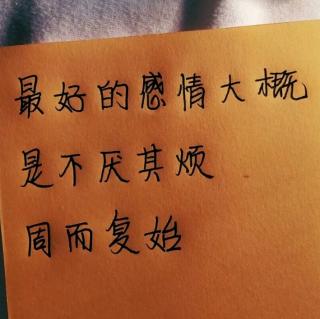 最好的感情大概
是不厌其烦
周而复始